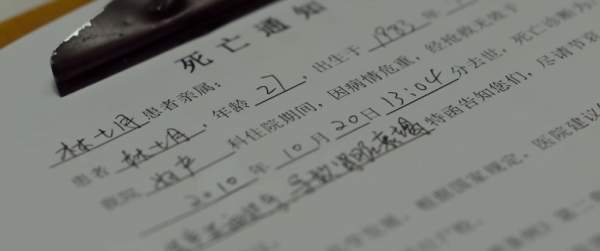 死亡通知
林七月患者亲属:
患者林七月,年龄27,出生于1983年
我院妇产科住院期间,因病情危重,经抢救无效于
2010年10月20日13:04分去世,死亡诊断为
特函告知您们,尽请节哀
学发展,根据国家规定,医院建议
条例》第二